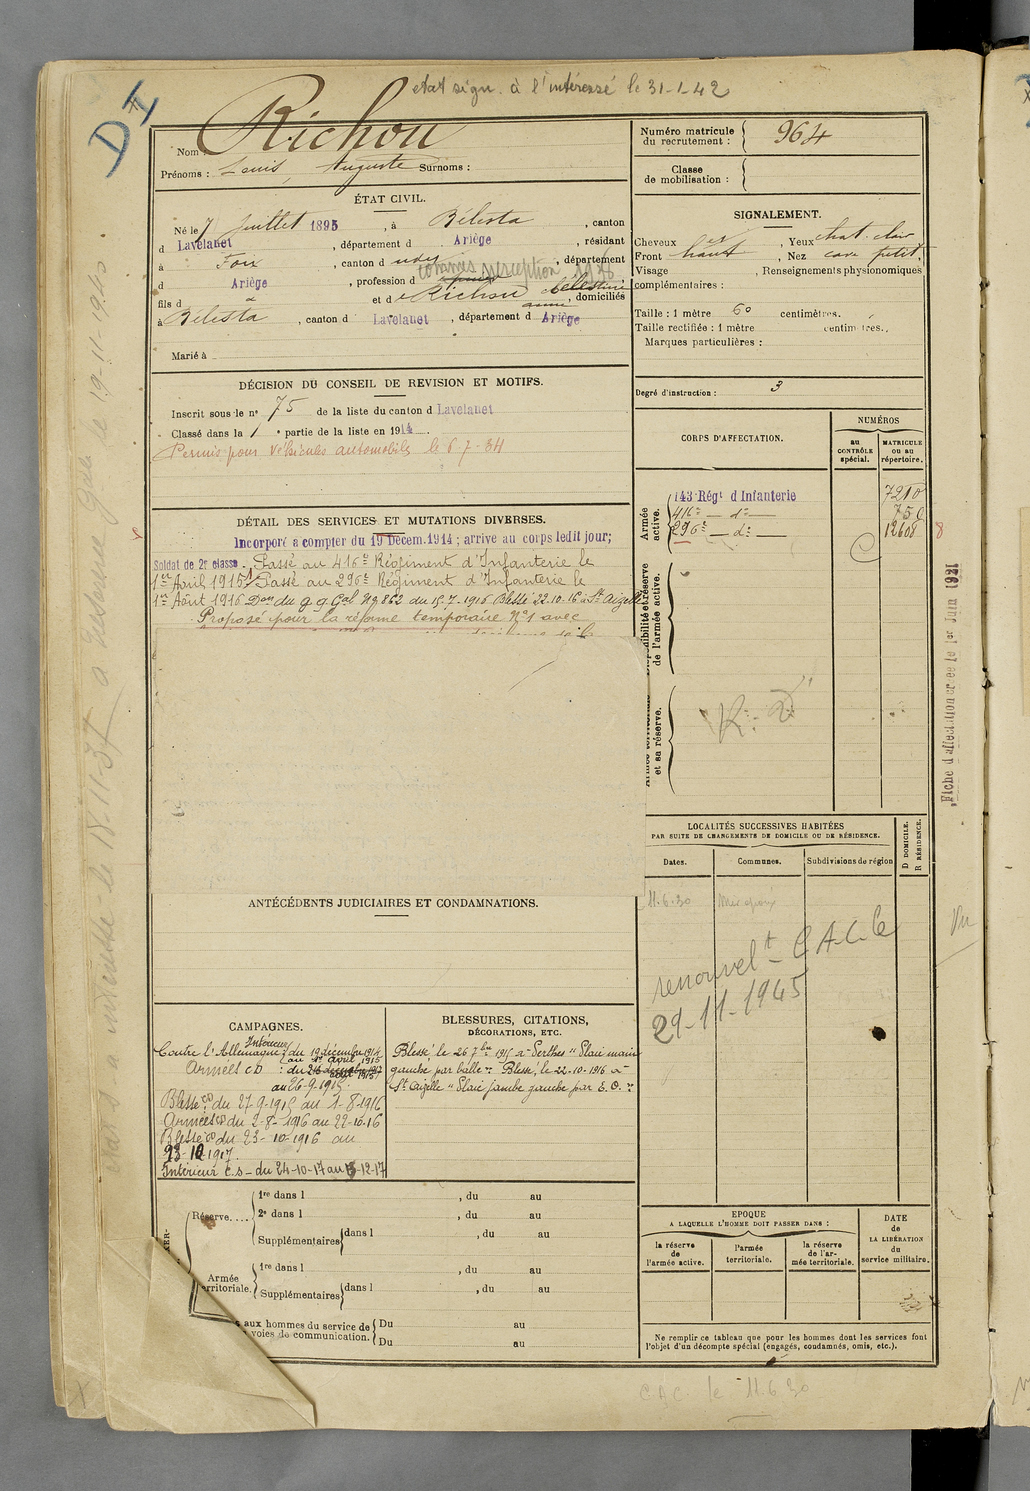 état sign. à l'intéressé le 31-1-42
D I
Nom : Richou
Prénoms : Louis, Auguste Surnoms :
Numéro matricule du recrutement : 964
Classe de mobilisation :
ÉTAT CIVIL.
Né le 7 juillet 1895, à Bélesta, canton
d Lavelanet, département d Ariège, résidant
à Foix, canton d udey, département
d Ariège, profession d
commis perception 1936
fils d et d Richou Célestine, domiciliés
à Bélesta, canton d Lavelanet, département d Ariège
Marié à
SIGNALEMENT.
Cheveux , Yeux chat. clair
Front haut, Nez cave petit,
Visage , Renseignements physionomiques
complémentaires :
Taille : 1 mètre 60 centimètres.
Taille rectifiée : 1 mètre centimètres.
Marques particulières :
Degré d'instruction : 3
DÉCISION DU CONSEIL DE REVISION ET MOTIFS.
Inscrit sous le n° 75 de la liste du canton d Lavelanet
Classé dans la 1 e partie de la liste en 1914.
Permis pour véhicules automobiles le 6-7-34
DÉTAIL DES SERVICES ET MUTATIONS DIVERSES.
Incorporé a compter du 19 Décem. 1914 ; arrivé au corps ledit jour;
Soldat de 2e classe. Passé au 416e Régiment d'Infanterie le
1er Avril 1915. Passé au 296e Régiment d'Infanterie le
1er Août 1916 Don du g. q. Gal N° 9862 du 15-7-1916 Blessé 22-10-16 à St Aizelle
Proposé pour la réforme temporaire N°1 avec
CORPS D'AFFECTATION.
NUMÉROS
au CONTRÔLE spécial.
MATRICULE ou au répertoire.
Armée active.
143 Régt d'Infanterie 7210
416e — d° — 750
296e — d° — 12608
8
Disponibilité et réserve de l'armée active.
Armée territoriale et sa réserve.
R. D
Fiche d'affectation créée le 1er Juin 1921
LOCALITÉS SUCCESSIVES HABITÉES
PAR SUITE DE CHANGEMENTS DE DOMICILE OU DE RÉSIDENCE.
Dates. Communes. Subdivisions de région D DOMICILE. R RÉSIDENCE.
11.6.30 Mirepoix
renouvelt C.A.C. le
29-11-1945
Vu
ANTÉCÉDENTS JUDICIAIRES ET CONDAMNATIONS.
CAMPAGNES.
Contre l'Allemagne Intérieur du 19 décembre 1914
au 1er Avril 1915
Armées CD : du
au 26-9-1915
Blessé CD du 27-9-1915 au 1-8-1916
Armées CD du 2-8-1916 au 22-10-16
Blessé CD du 23-10-1916 au
23-10-1917.
Intérieur C.S - du 24-10-17 au 13-12-17
BLESSURES, CITATIONS,
DÉCORATIONS, ETC.
Blessé le 26 7bre 1915 à Serthes "Plaie main
gauche par balle". Blessé, le 22-10-1916 à
St Aizelle "Plaie jambe gauche par E.O."
Réserve....
1re dans l , du au
2e dans l , du au
Supplémentaires dans l , du au
Armée territoriale.
1re dans l , du au
Supplémentaires dans l , du au
s aux hommes du service de voies de communication.
Du au
Du au
EPOQUE
A LAQUELLE L'HOMME DOIT PASSER DANS :
la réserve de l'armée active.
l'armée territoriale.
la réserve de l'armée territoriale.
DATE de LA LIBÉRATION du service militaire.
Ne remplir ce tableau que pour les hommes dont les services font
l'objet d'un décompte spécial (engagés, condamnés, omis, etc.).
C.A.C. le 11.6.30